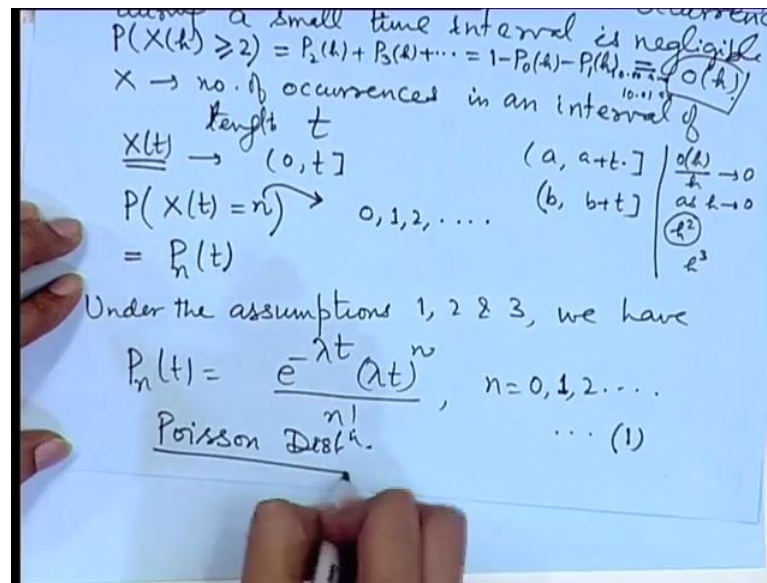 a small time interval is negligible
P(X(h) ≥ 2) = P₂(h) + P₃(h) + ··· = 1 - P₀(h) - P₁(h) = o(h)
X → no. of occurrences in an interval of
length t
X(t) → (0, t]
(a, a+t.]
o(h)/h → 0
P(X(t) = n) → 0, 1, 2, ....
(b, b+t]
as h → 0
h²
= Pₙ(t)
h³
Under the assumptions 1, 2 & 3, we have
Pₙ(t) = e^{-λt} (λt)^n / n! , n = 0, 1, 2 ....
Poisson Distⁿ.
... (1)